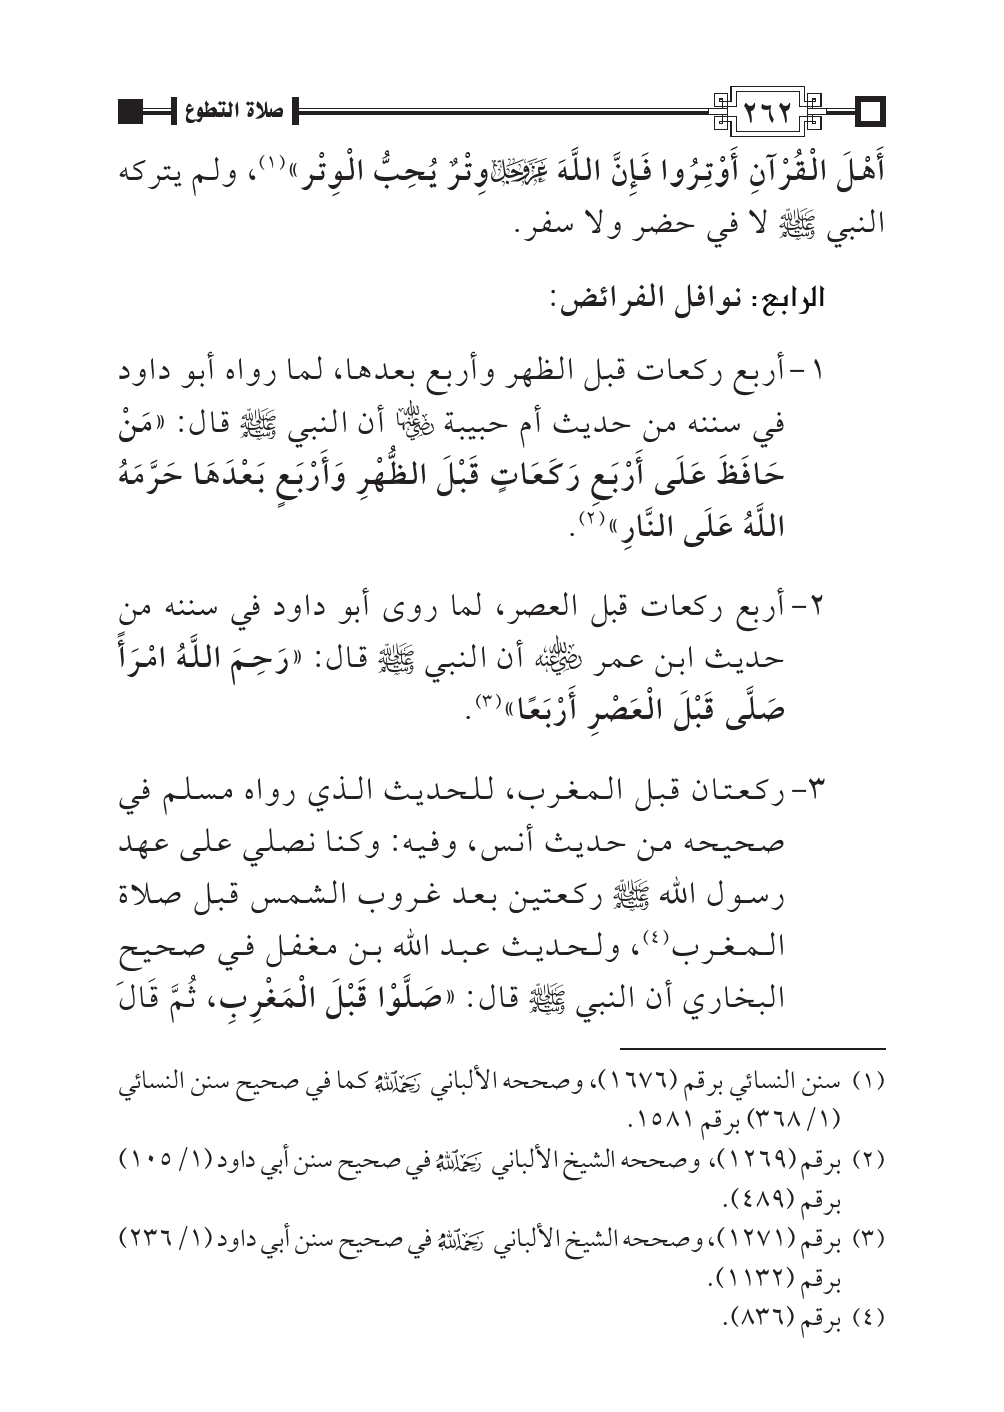 ٢٦٢ صلاة التطوع
أَهْلَ الْقُرْآنِ أَوْتِرُوا فَإِنَّ اللَّهَ عَزَّوَجَلَّ وِتْرٌ يُحِبُّ الْوِتْر»(١)، ولم يتركه
النبي ﷺ لا في حضر ولا سفر.
الرابع: نوافل الفرائض:
١- أربع ركعات قبل الظهر وأربع بعدها، لما رواه أبو داود
في سننه من حديث أم حبيبة رضي الله عنها أن النبي ﷺ قال: «مَنْ
حَافَظَ عَلَى أَرْبَعِ رَكَعَاتٍ قَبْلَ الظُّهْرِ وَأَرْبَعٍ بَعْدَهَا حَرَّمَهُ
اللَّهُ عَلَى النَّارِ»(٢).
٢- أربع ركعات قبل العصر، لما روى أبو داود في سننه من
حديث ابن عمر رضي الله عنه أن النبي ﷺ قال: «رَحِمَ اللَّهُ امْرَأً
صَلَّى قَبْلَ الْعَصْرِ أَرْبَعًا»(٣).
٣- ركعتان قبل المغرب، للحديث الذي رواه مسلم في
صحيحه من حديث أنس، وفيه: وكنا نصلي على عهد
رسول الله ﷺ ركعتين بعد غروب الشمس قبل صلاة
المغرب(٤)، ولحديث عبد الله بن مغفل في صحيح
البخاري أن النبي ﷺ قال: «صَلَّوْا قَبْلَ الْمَغْرِبِ، ثُمَّ قَالَ
(١) سنن النسائي برقم (١٦٧٦)، وصححه الألباني رحمه الله كما في صحيح سنن النسائي
(١/ ٣٦٨) برقم ١٥٨١.
(٢) برقم (١٢٦٩)، وصححه الشيخ الألباني رحمه الله في صحيح سنن أبي داود (١/ ١٠٥)
برقم (٤٨٩).
(٣) برقم (١٢٧١)، وصححه الشيخ الألباني رحمه الله في صحيح سنن أبي داود (١/ ٢٣٦)
برقم (١١٣٢).
(٤) برقم (٨٣٦).